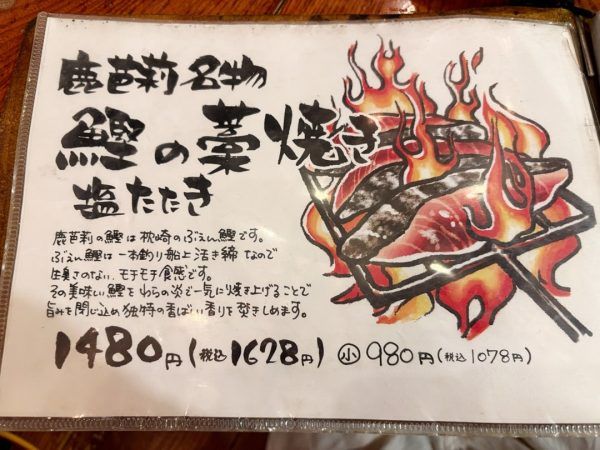 鹿芭莉名物
鰹の藁焼き
塩たたき
鹿芭莉の鰹は枕崎のぶえん鰹です。
ぶえん鰹は一本釣り船上活き締なので
生臭さのない、モチモチ食感です。
その美味しい鰹をわらの炎で一気に焼き上げることで
旨みを閉じ込め独特の香ばしい香りを焚きしめます。
1480円(税込1628円) 小 980円(税込1078円)